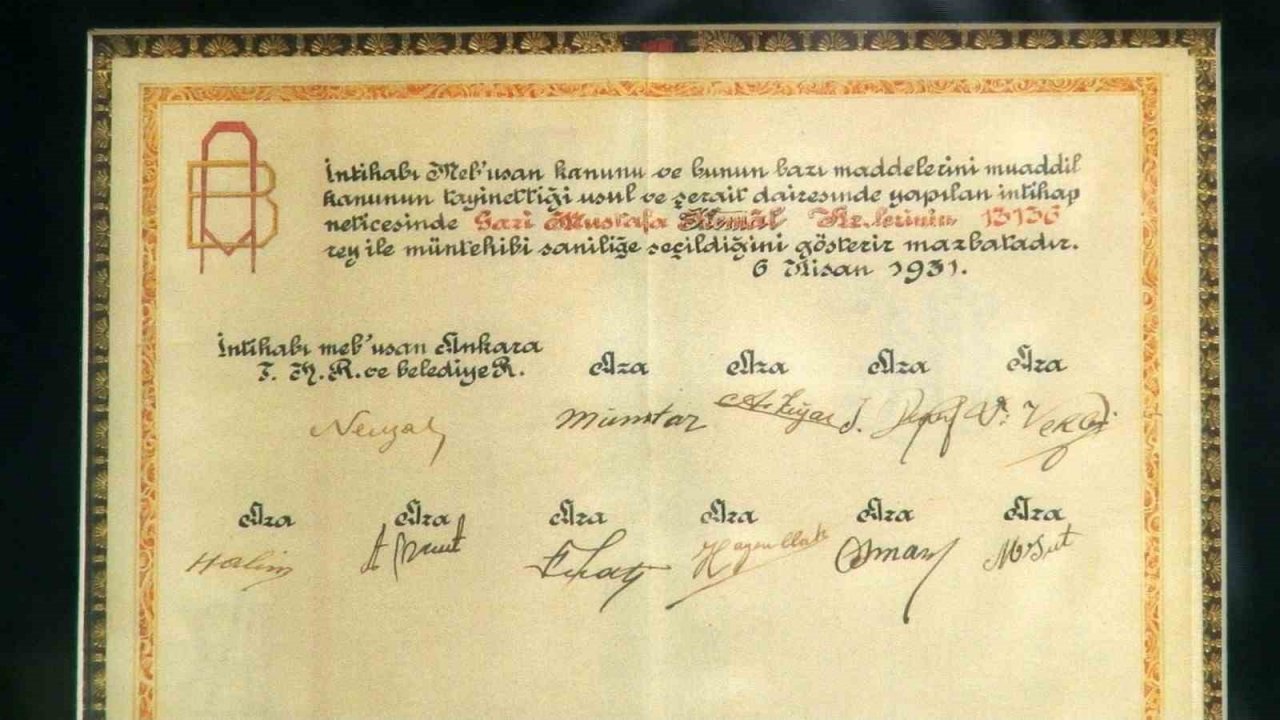 İntihabı Meb'usan kanunu ve bunun bazı maddelerini muaddil
kanunun tayinettiği usul ve şerait dairesinde yapılan intihap
neticesinde Gazi Mustafa Kemâl Hz.lerinin 13136
rey ile müntehibi saniliğe seçildiğini gösterir mazbatadır.
6 Nisan 1931.
İntihabı meb'usan Ankara
T. H. R. ve belediye R.
Âza Âza Âza Âza
Nevzat Mümtaz
Âza Âza Âza Âza Âza Âza
Halim Osman